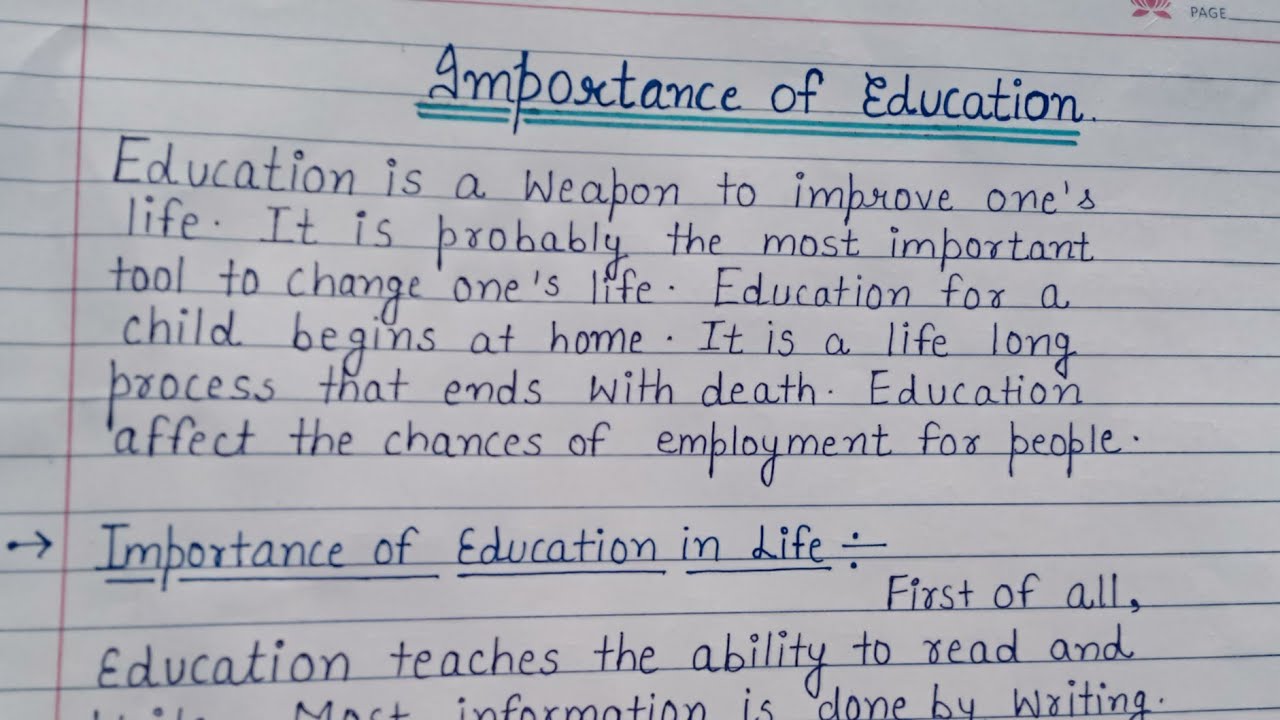 PAGE
Importance of Education.
Education is a weapon to improve one's
life. It is probably the most important
tool to change one's life. Education for a
child begins at home. It is a life long
process that ends with death. Education
affect the chances of employment for people.
→ Importance of Education in Life ÷
First of all,
Education teaches the ability to read and
Most information is done by writing.